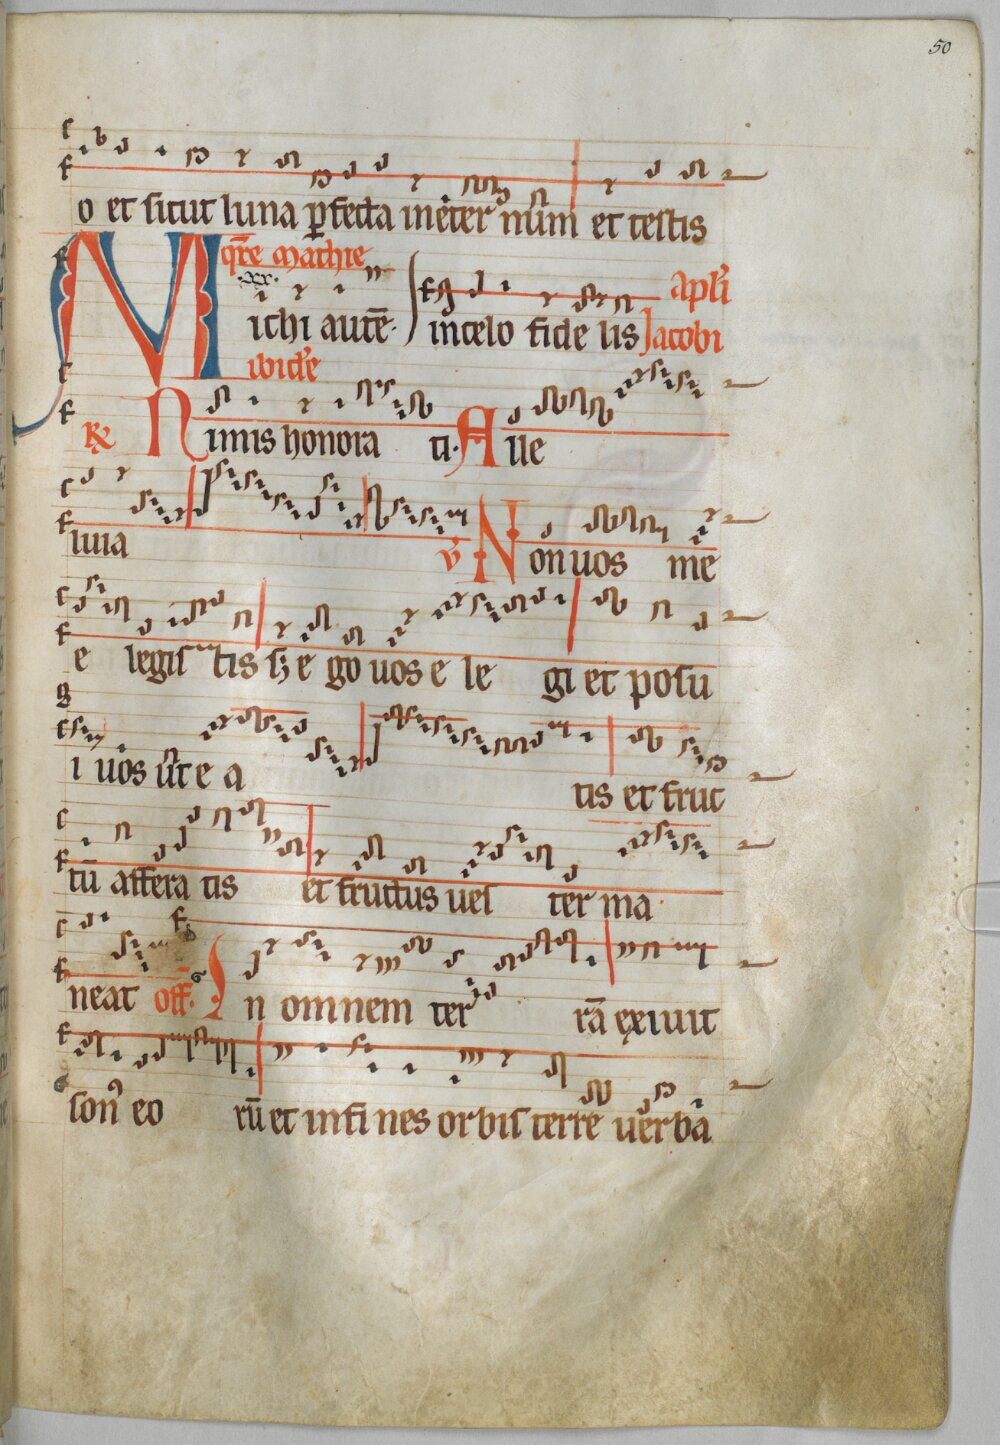 50
o et sicut luna ꝑfecta inet̄er num et testis
q̄re Mathie
xx.
apl̃i
Michi autē. in celo fidelis Jacobi
ibidē
R̸ Nimis honora ti. A lle
luia ꝟ Non uos me
e legis tis sꝫ e go uos e le gi et posu
i uos ut e a
tis et fruc
tū affera tis et fructus ues ter ma
neat off. In omnem ter rā exiuit
son⁹ eo rū et in fines orbis terre uerba